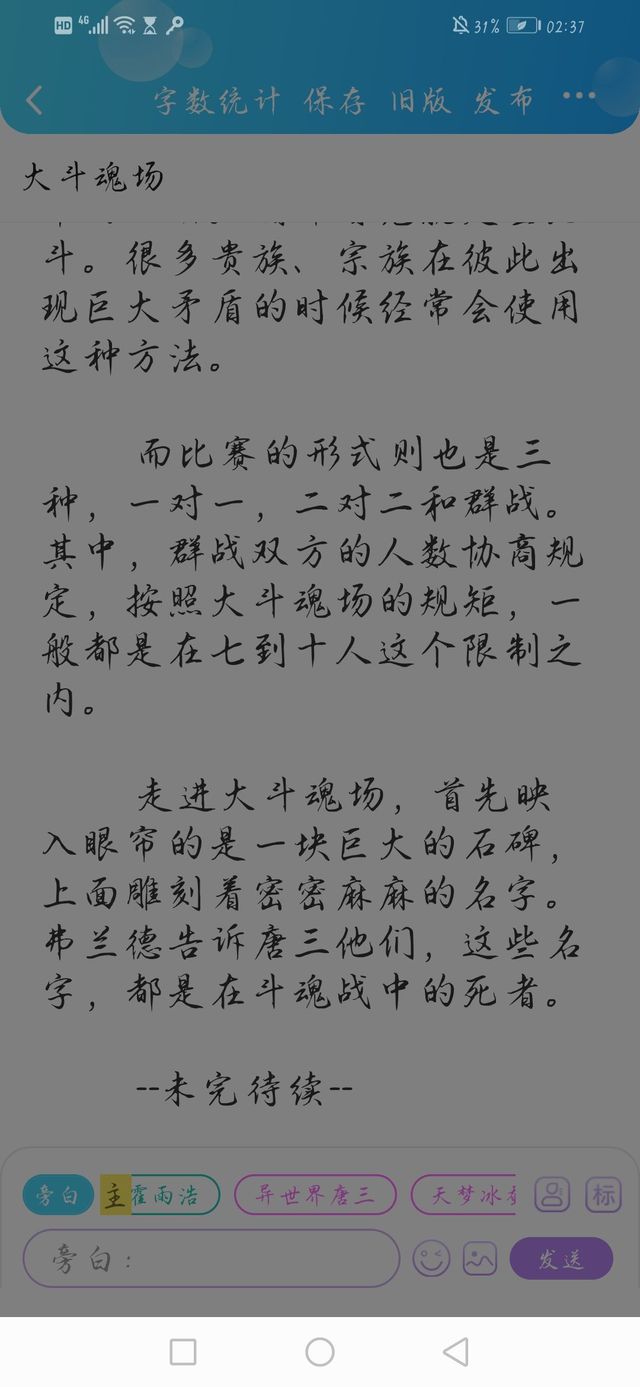 HD 4G 31% 02:37
字数统计 保存 旧版 发布 •••
大斗魂场
斗。很多贵族、宗族在彼此出
现巨大矛盾的时候经常会使用
这种方法。
而比赛的形式则也是三
种，一对一，二对二和群战。
其中，群战双方的人数协商规
定，按照大斗魂场的规矩，一
般都是在七到十人这个限制之
内。
走进大斗魂场，首先映
入眼帘的是一块巨大的石碑，
上面雕刻着密密麻麻的名字。
弗兰德告诉唐三他们，这些名
字，都是在斗魂战中的死者。
--未完待续--
旁白 主 霍雨浩 异世界唐三 天梦冰 标
旁白： 发送